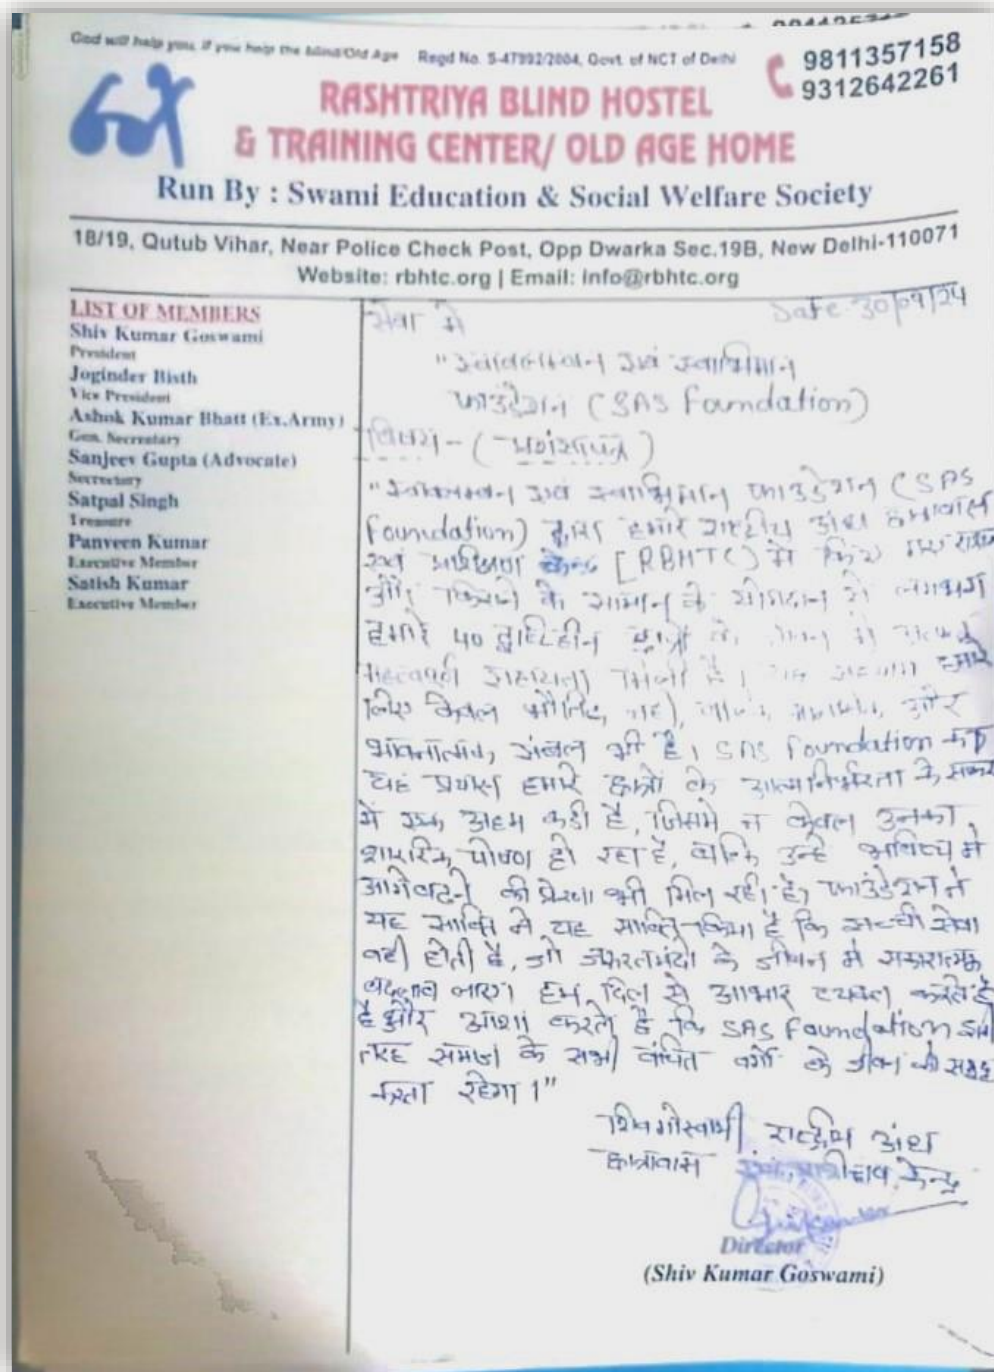 God will help you, if you help the blind/Old Age Regd No. S-47992/2004, Govt. of NCT of Delhi
9811357158
9312642261
RASHTRIYA BLIND HOSTEL
& TRAINING CENTER/ OLD AGE HOME
Run By : Swami Education & Social Welfare Society
18/19, Qutub Vihar, Near Police Check Post, Opp Dwarka Sec.19B, New Delhi-110071
Website: rbhtc.org | Email: info@rbhtc.org
LIST OF MEMBERS
Shiv Kumar Goswami
President
Joginder Bisth
Vice President
Ashok Kumar Bhatt (Ex.Army)
Gen. Secretary
Sanjeev Gupta (Advocate)
Secretary
Satpal Singh
Treasure
Panveen Kumar
Executive Member
Satish Kumar
Executive Member
Date 30/09/24
सेवा मे
"स्वावलम्बन एवं स्वाभिमान
फाउंडेशन (SAS Foundation)
विषय - (प्रशंसापत्र)
"स्वावलम्बन एवं स्वाभिमान फाउंडेशन (SAS
Foundation) द्वारा हमारे राष्ट्रीय अंध छात्रावास
एवं प्रशिक्षण केन्द्र [RBHTC) मे किए गए राशन
और किराने के सामान के योगदान से लगभग
हमारे 40 दृष्टिहीन छात्रों के मे
महत्वपूर्ण सहायता मिली है। यह हमारे
लिए केवल भौतिक नहीं, और
भावनात्मक संबल भी है। SAS Foundation का
यह प्रयास हमारे छात्रों के आत्मनिर्भरता के सफर
में एक अहम कडी है, जिसमे न केवल उनका
शारारिक पोषण हो रहा है, बल्कि उन्हे भविष्य मे
आगे बढने की प्रेरणा भी मिल रही है, फाउंडेशन ने
यह साबित ने यह साबित किया है कि सच्ची सेवा
वही होती है, जो जरूरतमंदो के जीवन मे सकारात्मक
बदलाव लाए। हम दिल से आभार व्यक्त करते है
है और आशा करते है कि SAS Foundation इसी
तरह समाज के सभी वंचित वर्गो के जीवन को समृद्ध
करता रहेगा।"
शिव गोस्वामी राष्ट्रीय अंध
छात्रावास एवं प्रशिक्षण केन्द्र
Director
(Shiv Kumar Goswami)